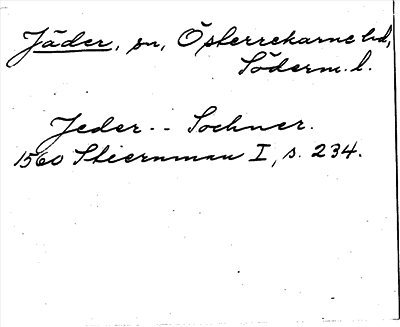 Jäder, sn, Österrekarne hd,
Söderm. l.
Jeder -- Sochner.
1560 Stiernman I, s. 234.